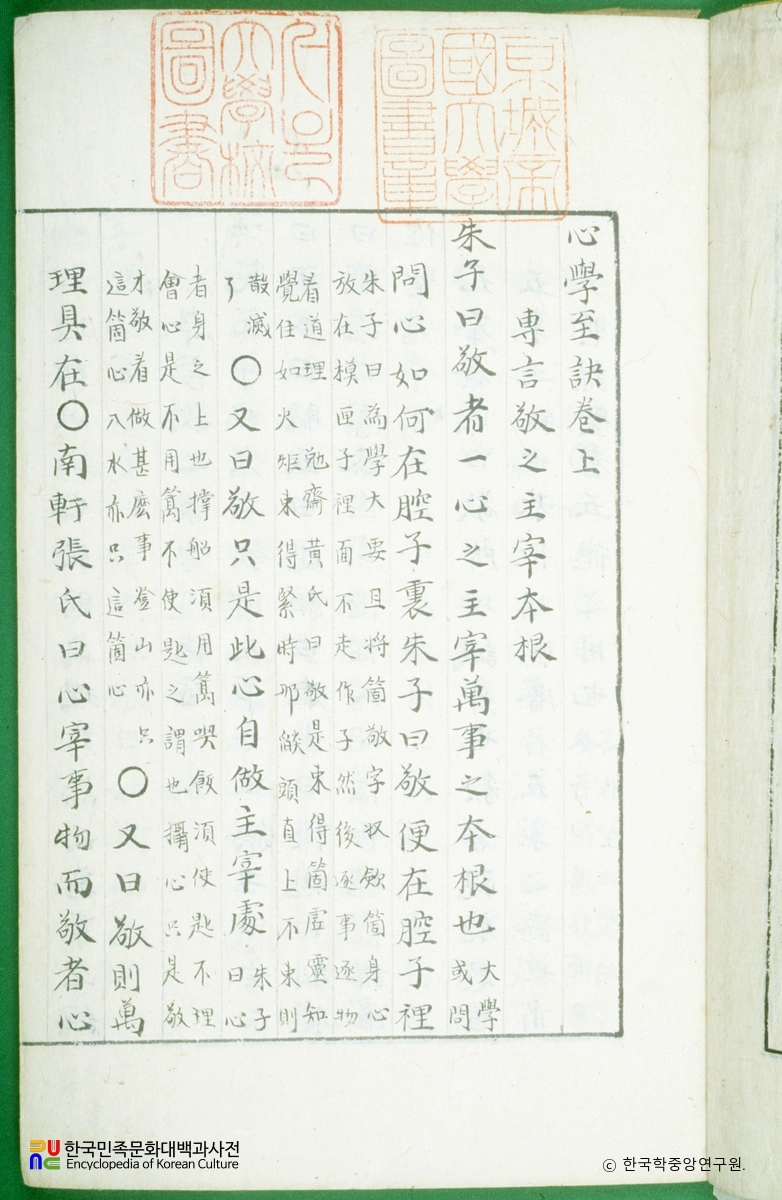 京城帝
國大學
圖書章
서울
大學校
圖書
心學至訣卷上
專言敬之主宰本根
朱子曰敬者一心之主宰萬事之本根也 大學
或問
問心如何在腔子裏朱子曰敬便在腔子裡
朱子曰為學大要且將箇敬字収斂箇身心
放在模匣子裡面不走作子然後逐事逐物
看道理 勉齋黃氏曰敬是束得箇虛靈知
覺住如火炬束得緊時那燄頭直上不束則
散滅
了 ○又曰敬只是此心自做主宰處 朱子
曰心
者身之上也撑船須用篙喫飯須使匙不理
會心是不用篙不使匙之謂也攝心只是敬
才敬看做甚麽事登山亦只
這箇心入水亦只這箇心 ○又曰敬則萬
理具在○南軒張氏曰心宰事物而敬者心
한국민족문화대백과사전
Encyclopedia of Korean Culture
ⓒ 한국학중앙연구원.